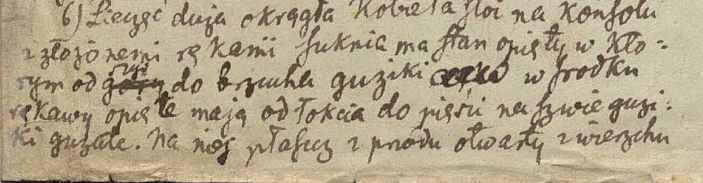 6) Pieczęć duża okrągła Kobieta stoi na Konsolu
z złożonemi rękami suknia ma stan opięty w Któ=
rym od szyi do brzucha guziki w srodku
rękawy opięte mają od łokcia do pięści na szwie guzi=
ki guzate. na niej płaszcz z przodu otwarty z wierzchu